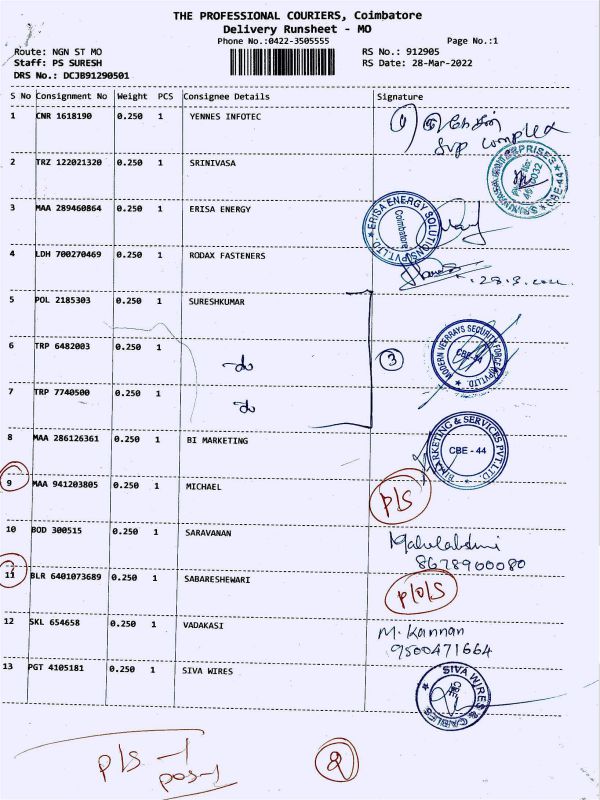 THE PROFESSIONAL COURIERS, Coimbatore
Delivery Runsheet - MO
Phone No.:0422-3505555 Page No.:1
Route: NGN ST MO RS No.: 912905
Staff: PS SURESH RS Date: 28-Mar-2022
DRS No.: DCJB91290501
S No Consignment No Weight PCS Consignee Details Signature
1 CNR 1618190 0.250 1 YENNES INFOTEC
SVP complex
2 TRZ 122021320 0.250 1 SRINIVASA
3 MAA 289460864 0.250 1 ERISA ENERGY
ERISA ENERGY SOLUTIONS PVT.LTD.
Coimbatore
4 LDH 700270469 0.250 1 RODAX FASTENERS
5 POL 2185303 0.250 1 SURESHKUMAR
6 TRP 6482003 0.250 1 do 3
MODERN VEERRAYS SECURITY FORCE (I) PVT.LTD.
CBE-44
7 TRP 7740500 0.250 1 do
8 MAA 286126361 0.250 1 BI MARKETING
BI MARKETING & SERVICES PVT.LTD.
CBE - 44
9 MAA 941203805 0.250 1 MICHAEL P/S
10 BOD 300515 0.250 1 SARAVANAN Mahalakshmi
8678900080
11 BLR 6401073689 0.250 1 SABARESHEWARI P/O/S
12 SKL 654658 0.250 1 VADAKASI M. Kannan
9500471664
13 PGT 4105181 0.250 1 SIVA WIRES
SIVA WIRES & CABLES
P/S -1
pos-1